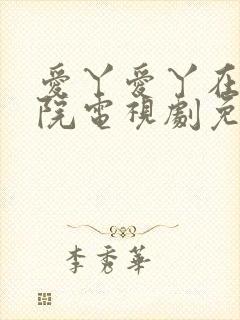 愛丫愛丫在
院電視劇免
李秀華